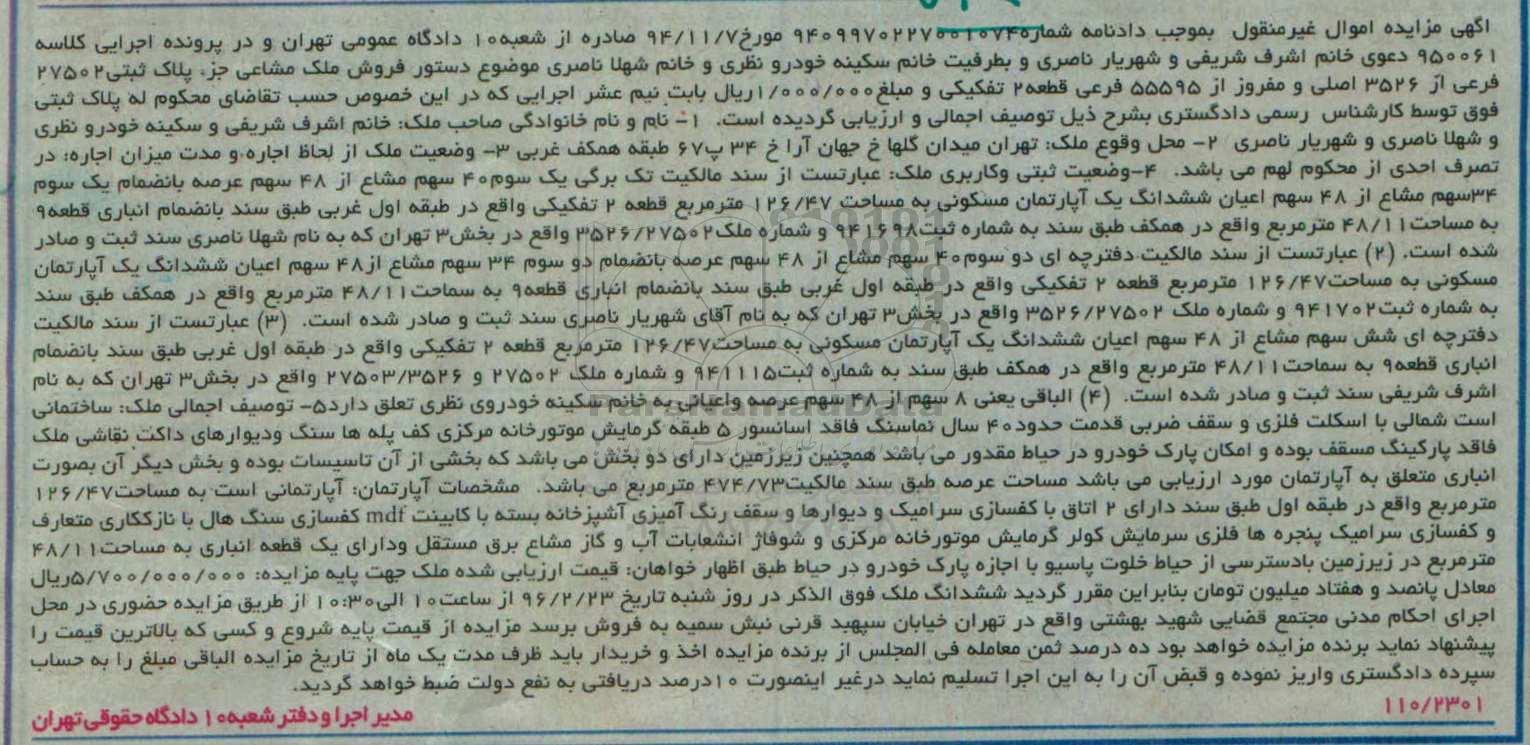 اگهی مزایده اموال غیرمنقول بموجب دادنامه شماره ۹۴۰۹۹۷۰۲۲۷۰۰۱۰۷۴ مورخ۹۴/۱۱/۷ صادره از شعبه۱۰ دادگاه عمومی تهران و در پرونده اجرایی کلاسه
۹۵۰۰۶۱ دعوی خانم اشرف شریفی و شهریار ناصری و بطرفیت خانم سکینه خودرو نظری و خانم شهلا ناصری موضوع دستور فروش ملک مشاعی جزء پلاک ثبتی۲۷۵۰۲
فرعی از ۳۵۲۶ اصلی و مفروز از ۵۵۵۹۵ فرعی قطعه۲ تفکیکی و مبلغ۱/۰۰۰/۰۰۰ریال بابت نیم عشر اجرایی که در این خصوص حسب تقاضای محکوم له پلاک ثبتی
فوق توسط کارشناس رسمی دادگستری بشرح ذیل توصیف اجمالی و ارزیابی گردیده است. ۱- نام و نام خانوادگی صاحب ملک: خانم اشرف شریفی و سکینه خودرو نظری
و شهلا ناصری و شهریار ناصری ۲- محل وقوع ملک: تهران میدان گلها خ جهان آرا خ ۳۴ پ۶۷ طبقه همکف غربی ۳- وضعیت ملک از لحاظ اجاره و مدت میزان اجاره: در
تصرف احدی از محکوم لهم می باشد. ۴-وضعیت ثبتی وکاربری ملک: عبارتست از سند مالکیت تک برگی یک سوم۴۰ سهم مشاع از ۴۸ سهم عرصه بانضمام یک سوم
۳۴سهم مشاع از ۴۸ سهم اعیان ششدانگ یک آپارتمان مسکونی به مساحت ۱۲۶/۴۷ مترمربع قطعه ۲ تفکیکی واقع در طبقه اول غربی طبق سند بانضمام انباری قطعه۹
به مساحت۴۸/۱۱ مترمربع واقع در همکف طبق سند به شماره ثبت۹۴۱۶۹۸ و شماره ملک۳۵۲۶/۲۷۵۰۲ واقع در بخش۳ تهران که به نام شهلا ناصری سند ثبت و صادر
شده است. (۲) عبارتست از سند مالکیت دفترچه ای دو سوم۴۰ سهم مشاع از ۴۸ سهم عرصه بانضمام دو سوم ۳۴ سهم مشاع از۴۸ سهم اعیان ششدانگ یک آپارتمان
مسکونی به مساحت۱۲۶/۴۷ مترمربع قطعه ۲ تفکیکی واقع در طبقه اول غربی طبق سند بانضمام انباری قطعه۹ به سماحت۴۸/۱۱ مترمربع واقع در همکف طبق سند
به شماره ثبت۹۴۱۷۰۲ و شماره ملک ۳۵۲۶/۲۷۵۰۲ واقع در بخش۳ تهران که به نام آقای شهریار ناصری سند ثبت و صادر شده است. (۳) عبارتست از سند مالکیت
دفترچه ای شش سهم مشاع از ۴۸ سهم اعیان ششدانگ یک آپارتمان مسکونی به مساحت۱۲۶/۴۷ مترمربع قطعه ۲ تفکیکی واقع در طبقه اول غربی طبق سند بانضمام
انباری قطعه۹ به سماحت۴۸/۱۱ مترمربع واقع در همکف طبق سند به شماره ثبت۹۴۱۱۱۵ و شماره ملک ۲۷۵۰۲ و ۲۷۵۰۳/۳۵۲۶ واقع در بخش۳ تهران که به نام
اشرف شریفی سند ثبت و صادر شده است. (۴) الباقی یعنی ۸ سهم از ۴۸ سهم عرصه واعیانی به خانم سکینه خودروی نظری تعلق دارد۵- توصیف اجمالی ملک: ساختمانی
است شمالی با اسکلت فلزی و سقف ضربی قدمت حدود۴۰ سال نماسنگ فاقد اسانسور ۵ طبقه گرمایش موتورخانه مرکزی کف پله ها سنگ ودیوارهای داکت نقاشی ملک
فاقد پارکینگ مسقف بوده و امکان پارک خودرو در حیاط مقدور می باشد همچنین زیرزمین دارای دو بخش می باشد که بخشی از آن تاسیسات بوده و بخش دیگر آن بصورت
انباری متعلق به آپارتمان مورد ارزیابی می باشد مساحت عرصه طبق سند مالکیت۴۷۴/۷۳ مترمربع می باشد. مشخصات آپارتمان: آپارتمانی است به مساحت۱۲۶/۴۷
مترمربع واقع در طبقه اول طبق سند دارای ۲ اتاق با کفسازی سرامیک و دیوارها و سقف رنگ آمیزی آشپزخانه بسته با کابینت mdf کفسازی سنگ هال با نازککاری متعارف
و کفسازی سرامیک پنجره ها فلزی سرمایش کولر گرمایش موتورخانه مرکزی و شوفاژ انشعابات آب و گاز مشاع برق مستقل ودارای یک قطعه انباری به مساحت۴۸/۱۱
مترمربع در زیرزمین بادسترسی از حیاط خلوت پاسیو با اجازه پارک خودرو در حیاط طبق اظهار خواهان: قیمت ارزیابی شده ملک جهت پایه مزایده: ۵/۷۰۰/۰۰۰/۰۰۰ریال
معادل پانصد و هفتاد میلیون تومان بنابراین مقرر گردید ششدانگ ملک فوق الذکر در روز شنبه تاریخ ۹۶/۲/۲۳ از ساعت۱۰ الی۱۰:۳۰ از طریق مزایده حضوری در محل
اجرای احکام مدنی مجتمع قضایی شهید بهشتی واقع در تهران خیابان سپهبد قرنی نبش سمیه به فروش برسد مزایده از قیمت پایه شروع و کسی که بالاترین قیمت را
پیشنهاد نماید برنده مزایده خواهد بود ده درصد ثمن معامله فی المجلس از برنده مزایده اخذ و خریدار باید ظرف مدت یک ماه از تاریخ مزایده الباقی مبلغ را به حساب
سپرده دادگستری واریز نموده و قبض آن را به این اجرا تسلیم نماید درغیر اینصورت ۱۰درصد دریافتی به نفع دولت ضبط خواهد گردید.
۱۱۰/۲۳۰۱
مدیر اجرا و دفتر شعبه۱۰ دادگاه حقوقی تهران